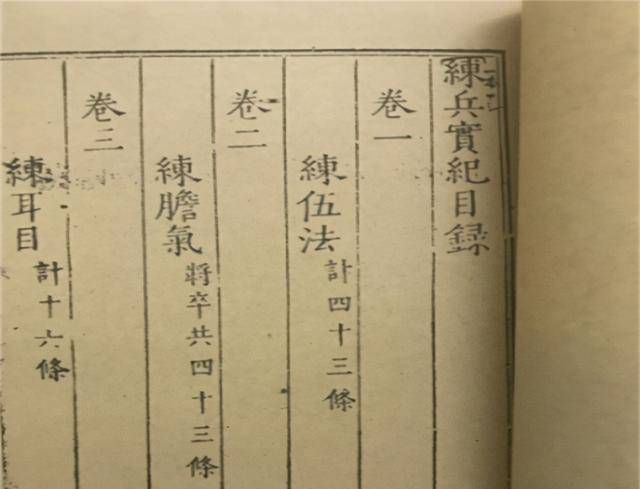 練兵實紀目録
卷一
練伍法 計四十三條
卷二
練膽氣 將卒共四十三條
卷三
練耳目 計十六條